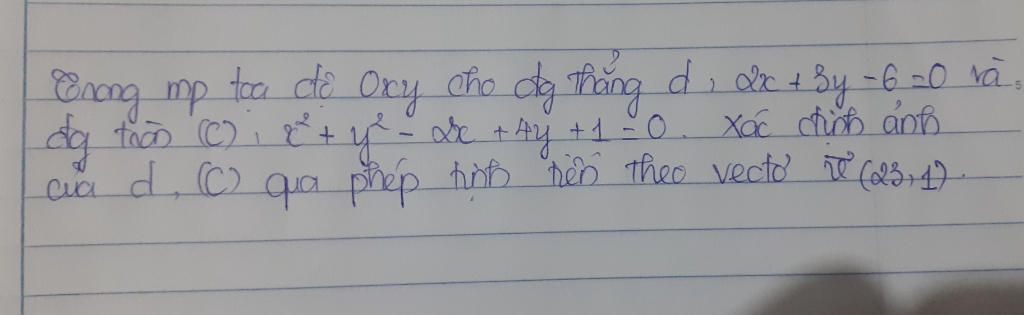 Trong mp tọa độ Oxy cho đg thẳng d: 2x + 3y - 6 = 0 và
đg tròn (C): x² + y² - 2x + 4y + 1 = 0. Xác định ảnh
của d, (C) qua phép tịnh tiến theo vectơ v⃗ (23; 1).